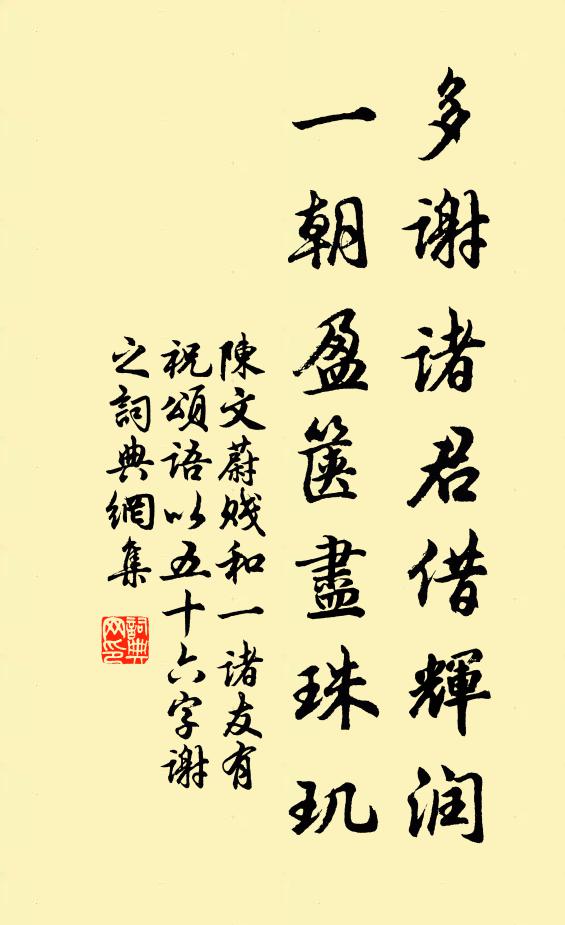 多谢诸君借輝润
一朝盈篋盡珠玑
陳文蔚贱和一诸友有
祝頌语以五十六字谢
之詞典網集
詞典
网印